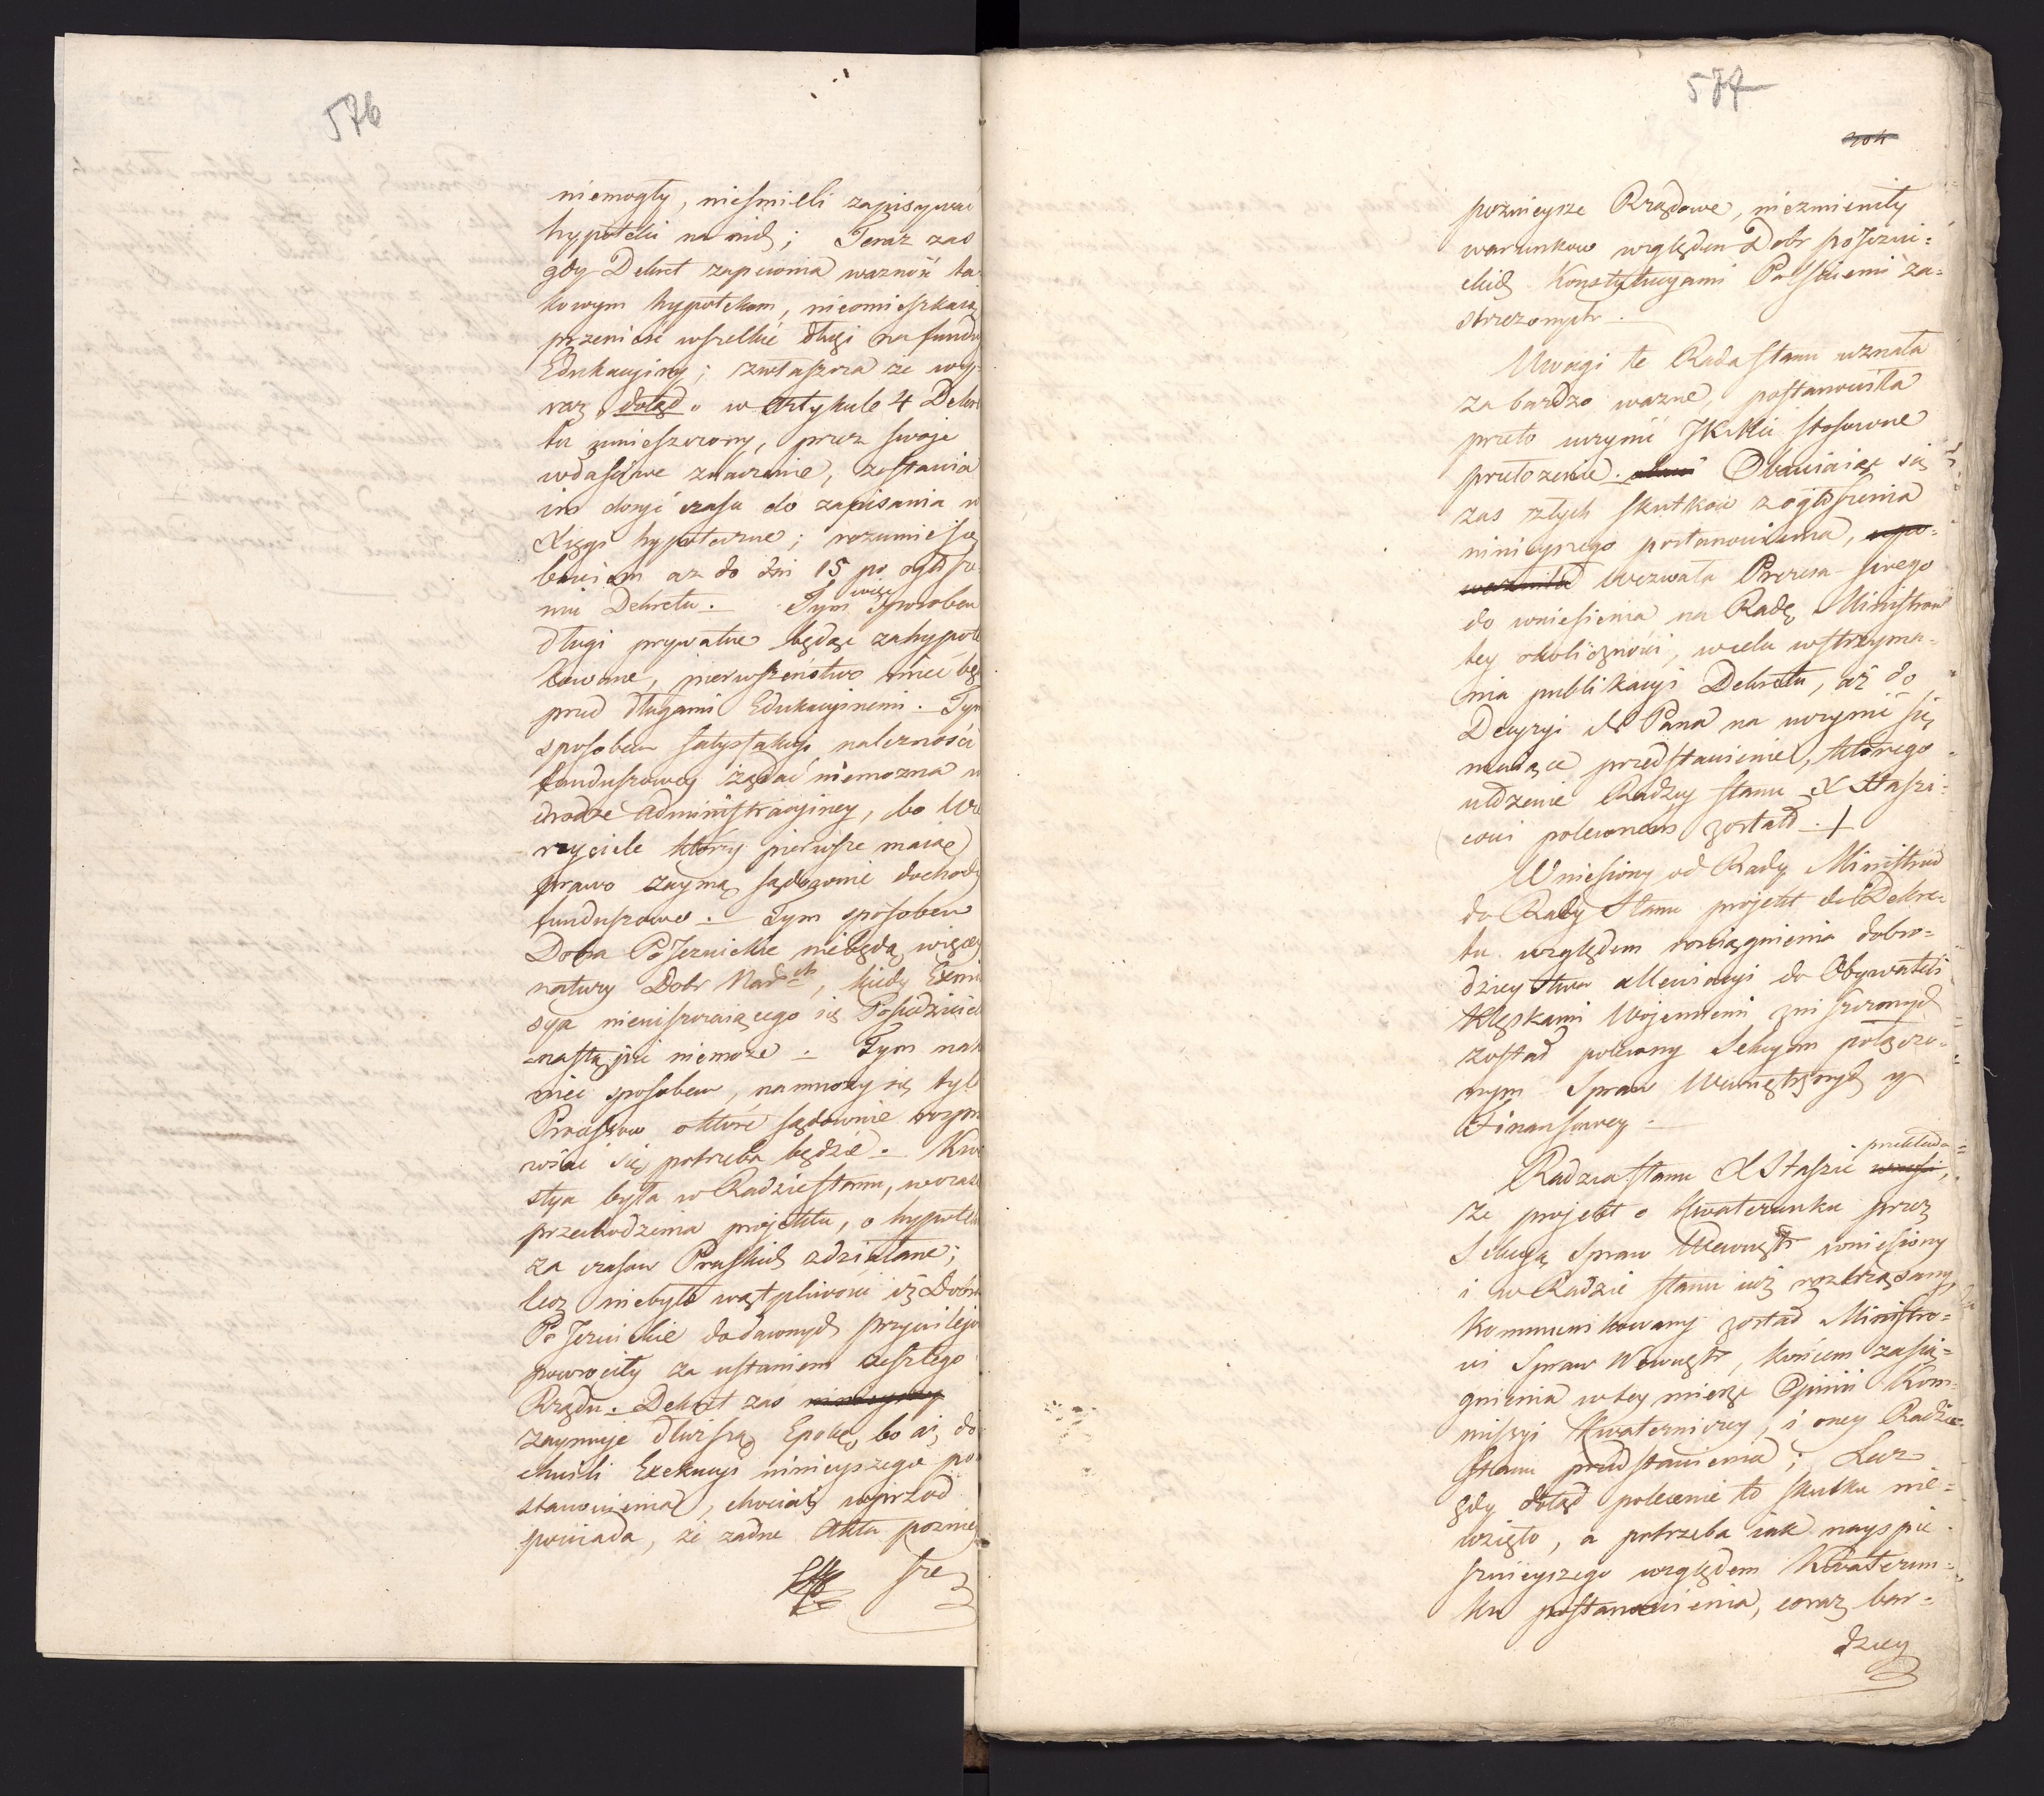 576
niemogły, nieśmieli zapisywać
hypoteki na nich; Teraz zas
gdy Dekret zapewnia ważność ta
kowym hypotekom, nieomieszkaią
przenieść wszelkie długi na fundu
Edukacyiny; zwłaszcza że wy-
raz „dotąd„ w Artykule 4 Dekre
tu umieszczony, przez swoje
właściwe znaczenie, zostawia
im dosyć czasu do zapisania w
Xięgi hypoteczne; rozumie się
bowiem aż do dni 15 po ogłosze-
niu Dekretu. — Tym więc sposobem
długi prywatne będąc zahypote
kowane, pierwszeństwo mieć będ
przed długami Edukacyinemi. — Tym
sposobem satysfakcyi należności
funduszowey żądać niemożna w
drodze Administracyiney, bo Wie
rzyciele którzy pierwsze maiąc
prawo zaymą sądownie dochody
funduszowe. — Tym sposobem
Dobra PoJezuickie niebędą więcey
natury Dobr Nar.ch, kiedy Exmi
sya nieuiszczaiącego się Posiedziciela
nastąpić niemoże. — Tym nako
niec sposobem, namnoży się tyle
Processow o które sądownie rozpra
wiać się potrzeba będzie. — Kwe
stya była w Radzie Stanu, w czasie
przechodzenia projektu, o hypoteki
za czasow Pruskich zdziałane;
lecz niebyło wątpliwości iż Dobra
PoJezuickie do dawnych przywileiow
powrociły za ustaniem zeszłego
Rządu. — Dekret zas ninieyszy
zaymuje dłuższą Epokę, bo aż do
chwili Exekucyi ninieyszego po-
stanowienia, chociaż wprzod
powiada, że żadne Akta poźniey
sze
577
304
poźnieysze Rządowe, niezmieniły
warunkow względem Dobr poJezui=
ckich Konstytucyami Polskiemi za=
strzeżonych. —
Uwagi te Rada Stanu uznała
za bardzo ważne, postanowiła
przeto uczynić JKMci stosowne
przełożenie. Obawiaiąc się
zas złych skutkow z ogłoszenia
ninieyszego postanowienia, upo=
ważniła wezwała Prezesa swego
do wniesienia na Radę Ministrow
tey okoliczności, w celu wstrzyma=
nia publikacyi Dekretu, aż do
Decyzyi N Pana na uczynić się
maiące przedstawienie, którego
ułożenie Radzcy Stanu X Staszi=
cowi polecone zostało. +
Wniesiony od Rady Ministrow
do Rady Stanu projekt do Dekre=
tu względem rozciągnienia dobro=
dzieystwa allewiacyi do Obywateli
klęskami Wojennemi zniszczonych
został polecony Sekcyom połączo=
nym Spraw Wewnętrznych y
Finansowey. —
Radzca Stanu X Staszic wnosi, przekłada=
że projekt o Kwaterunku przez
Sekcyą Spraw Wewnętr wniesiony
i w Radzie Stanu iuż roztrząsany,
kommunikowany został Ministro=
wi Spraw Wewnętr, końcem zasią=
gnienia w tey mierze Opinii Kom=
missyi Kwaterniczey, i oney Radzie
Stanu przedstawienia; Lecz
gdy dotąd polecenie to skutku nie=
wzięło, a potrzeba iak nayspie=
sznieyszego względem Kwaterun=
ku postanowienia, coraz bar=
dziey